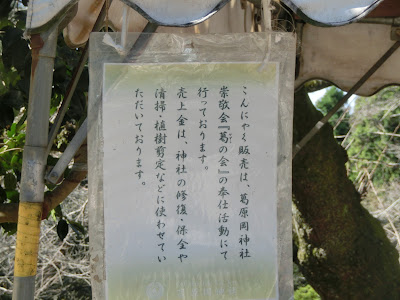 こんにゃく販売は、葛原岡神社
崇敬会『葛の会』の奉仕活動にて
行っております。
売上金は、神社の修復・保全や
清掃・植樹剪定などに使わせてい
ただいております。